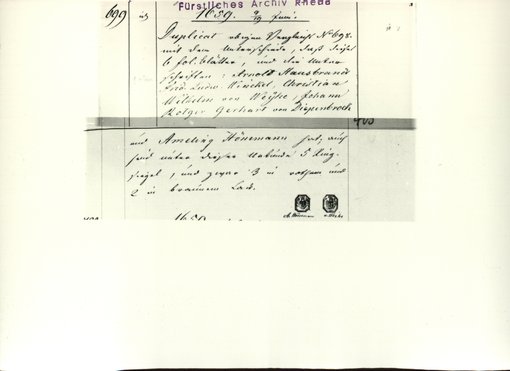 Fürstliches Archiv Rheda
699 1659. 9/19 Juni.
Duplicat obigen Vergleichs No 698.
mit dem Unterschiede, daß dieses
6 fol. blätter, und die Unter
schriften: Arnold Hausbrandt
Ludw Winckel, Christian
Wilhelm von Weyhe, Johann
Rötger Gerhart von Diepenbrock
und Ameling Hönemann hat, auch
sind unter dieser Urkunde 5 Ring-
siegel, und zwar 3 in rothem und
2 in braunem Lack.
1659